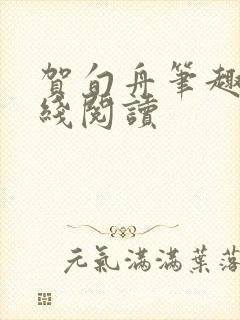 賀旬舟筆趣
綫閱讀
元氣滿滿葉落